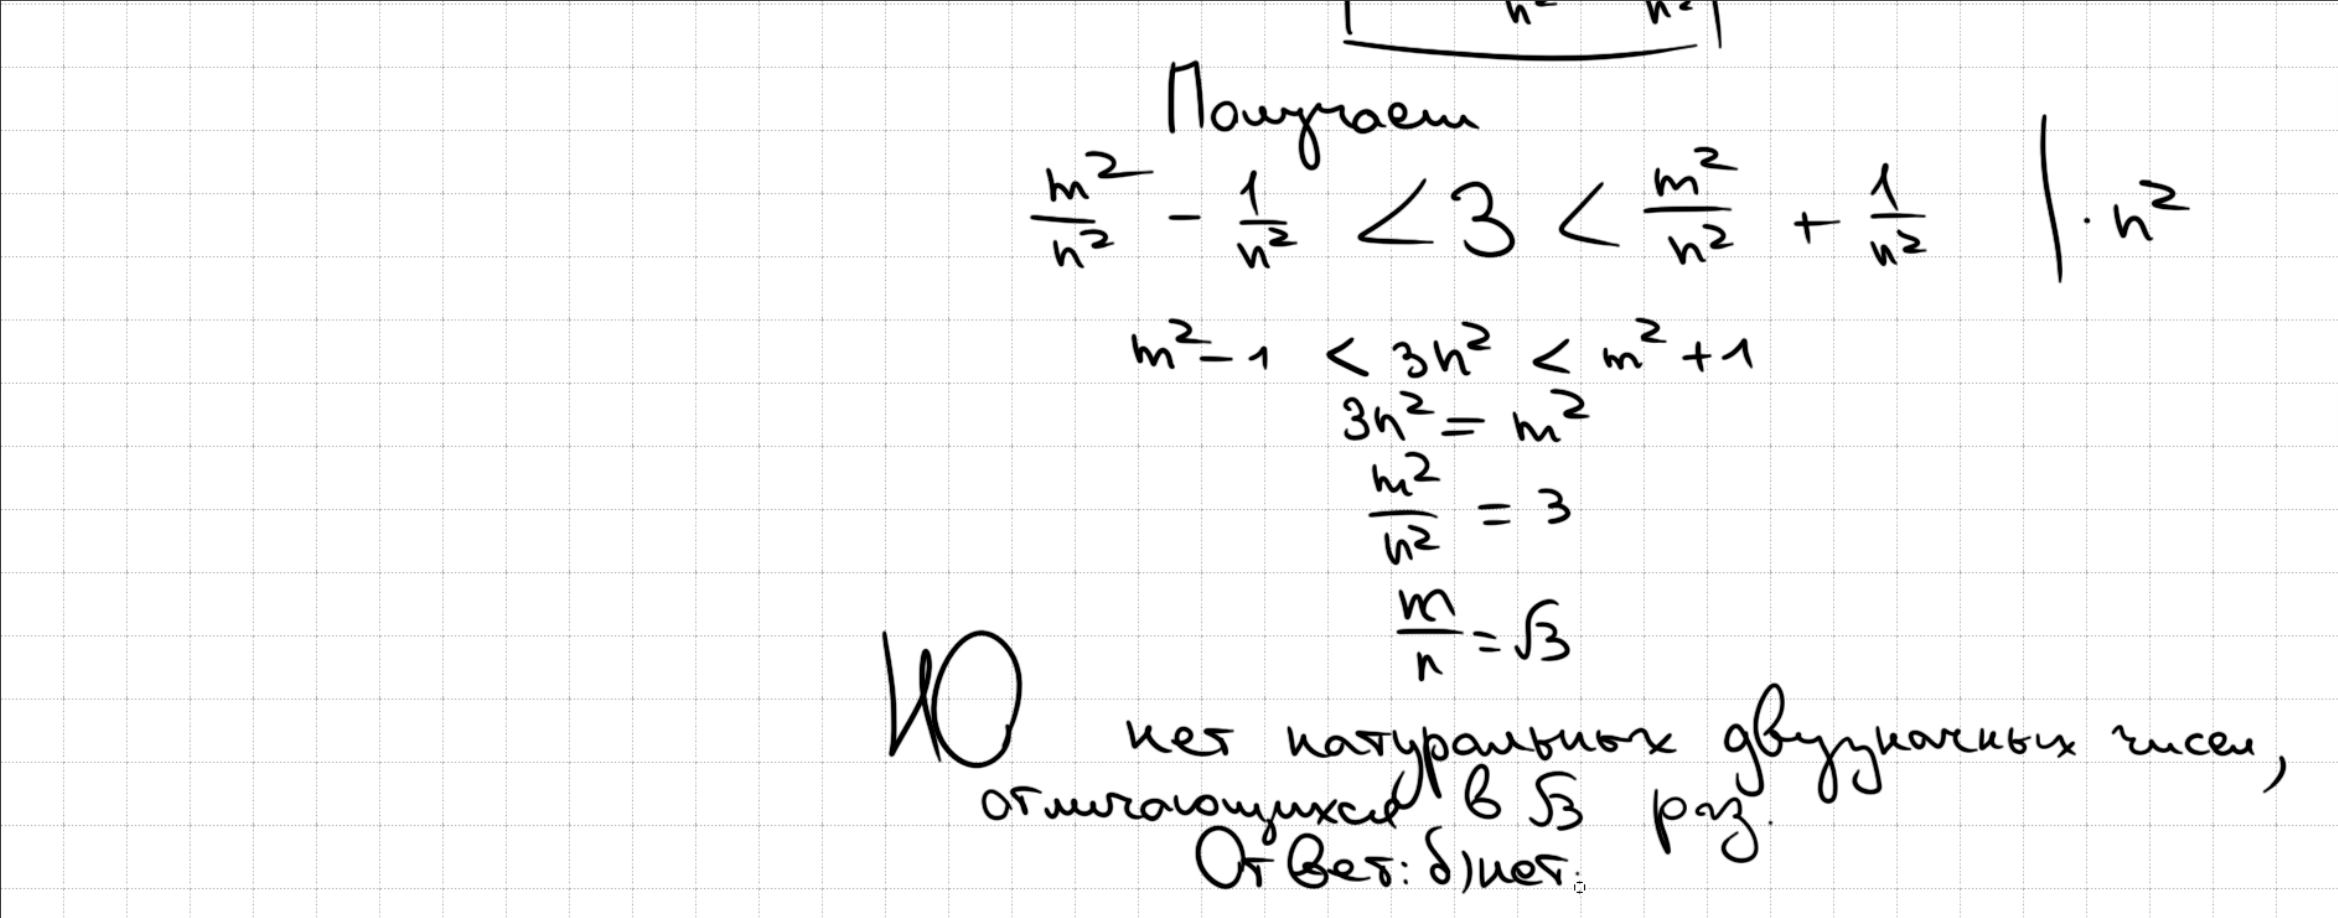 n² n²
Получаем
m²/n² - 1/n² < 3 < m²/n² + 1/n² | · n²
m² - 1 < 3n² < m² + 1
3n² = m²
m²/n² = 3
m/n = √3
НО нет натуральных двузначных чисел,
отличающихся в √3 раз.
Ответ: б) нет.